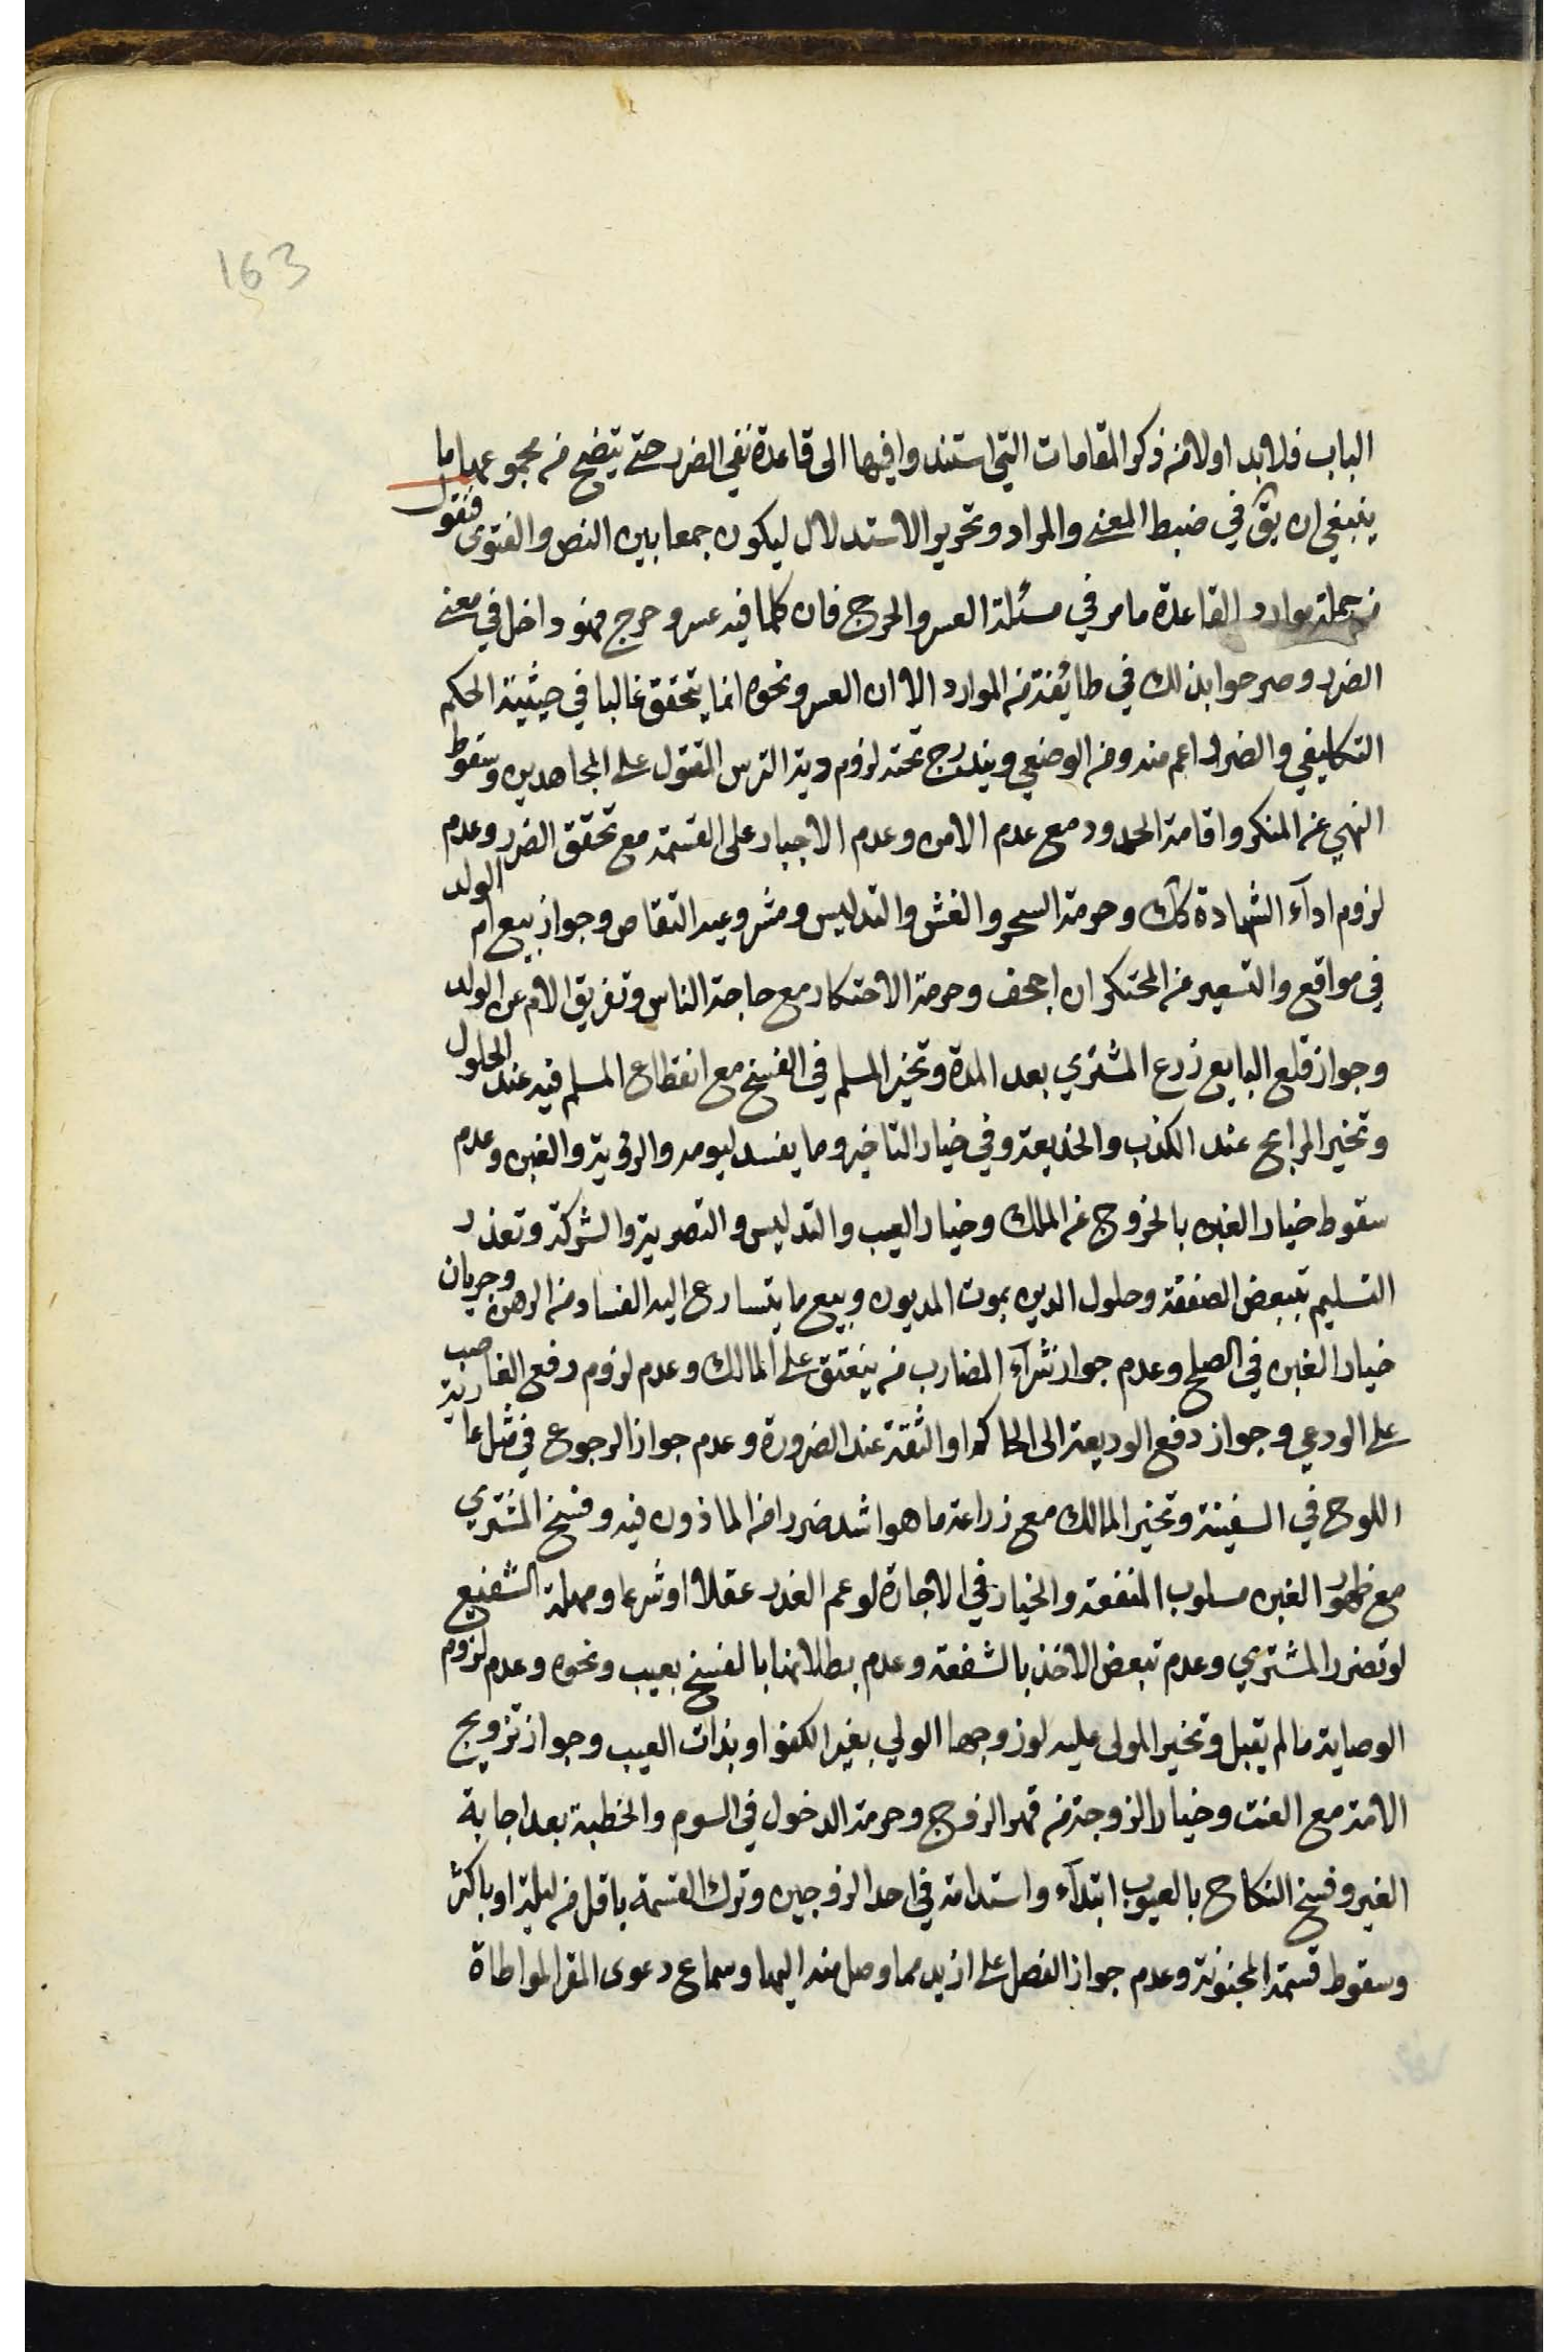 163
الباب فلا بد اولا من ذكر المقامات التي استندوا فيها الى قاعدة نفي الضرر حتى يتضح من مجموعها ما
ينبغي ان يق في ضبط المعنى والمراد وتحرير الاستدلال ليكون جمعا بين النص والفتوى فنقول
من جملة موارد القاعدة ما مر في مسئلة العسر والحرج فان كلما فيه عسر وحرج فهو داخل في معنى
الضرر وصرحوا بذلك في طائفة من الموارد الا ان العسر ونحوه انما يتحقق غالبا في حيثية الحكم
التكليفي والضرر اعم منه ومن الوضعي ويندرج تحته لزوم دية الترس المقتول على المجاهدين وسقوط
النهي عن المنكر واقامة الحدود مع عدم الامن وعدم الاجبار على القسمة مع تحقق الضرر وعدم
لزوم اداء الشهادة كك وحرمة السحر والغش والتدليس ومشروعية التقاص وجواز بيع ام الولد
في مواقع والتسعير من المحتكر ان اجحف وحرمة الاحتكار مع حاجة الناس وتفريق الام عن الولد
وجواز قلع البايع زرع المشتري بعد المدة وتخير المسلم في الفسخ مع انقطاع المسلم فيه عند الحلول
وتخير المرابح عند الكذب والخديعة وفي خيار التاخير وما يفسد ليومه والرؤية والغبن وعدم
سقوط خيار الغبن بالخروج عن الملك وخيار العيب والتدليس والتصرية والشركة وتعذر
التسليم بتبعض الصفقة وحلول الدين بموت المديون وبيع ما يتسارع اليه الفساد من الرهن وجريان
خيار الغبن في الصلح وعدم جواز شراء المضارب من ينعتق على المالك وعدم لزوم دفع الغاصب
على الودعي وجواز دفع الوديعة الى الحاكم او الثقة عند الضرورة وعدم جواز الرجوع في مثل عارية
اللوح في السفينة وتخير المالك مع زراعة ما هو اشد ضررا من الماذون فيه وفسخ المشتري
مع ظهور الغبن مسلوب المنفعة والخيار في الاجارة لو عم العذر عقلا او شرعا ومهلة الشفيع
لو تضرر المشتري وعدم تبعض الاخذ بالشفعة وعدم بطلانها بالفسخ بعيب ونحوه وعدم لزوم
الوصاية ما لم يقبل وتخير المولى عليه لو زوجها الولي بغير الكفو او بذات العيب وجواز تزويج
الامة مع العنت وخيار الزوجة من قهر الزوج وحرمة الدخول في السوم والخطبة بعد اجابة
الغير وفسخ النكاح بالعيوب ابتداء واستدامة في احد الزوجين وترك القسمة باقل من ليلة او باكثر
وسقوط قسمة المجنونة وعدم جواز الفصل على ازيد مما وصل منه اليها وسماع دعوى المقر المواطاة